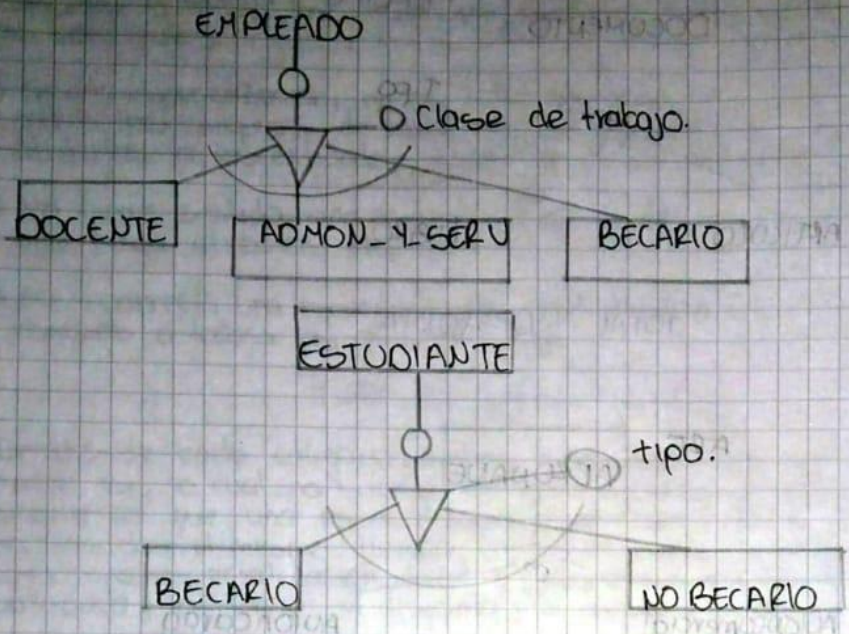 EMPLEADO
Clase de trabajo.
DOCENTE
ADMON_Y_SERV
BECARIO
ESTUDIANTE
tipo.
BECARIO
NO BECARIO